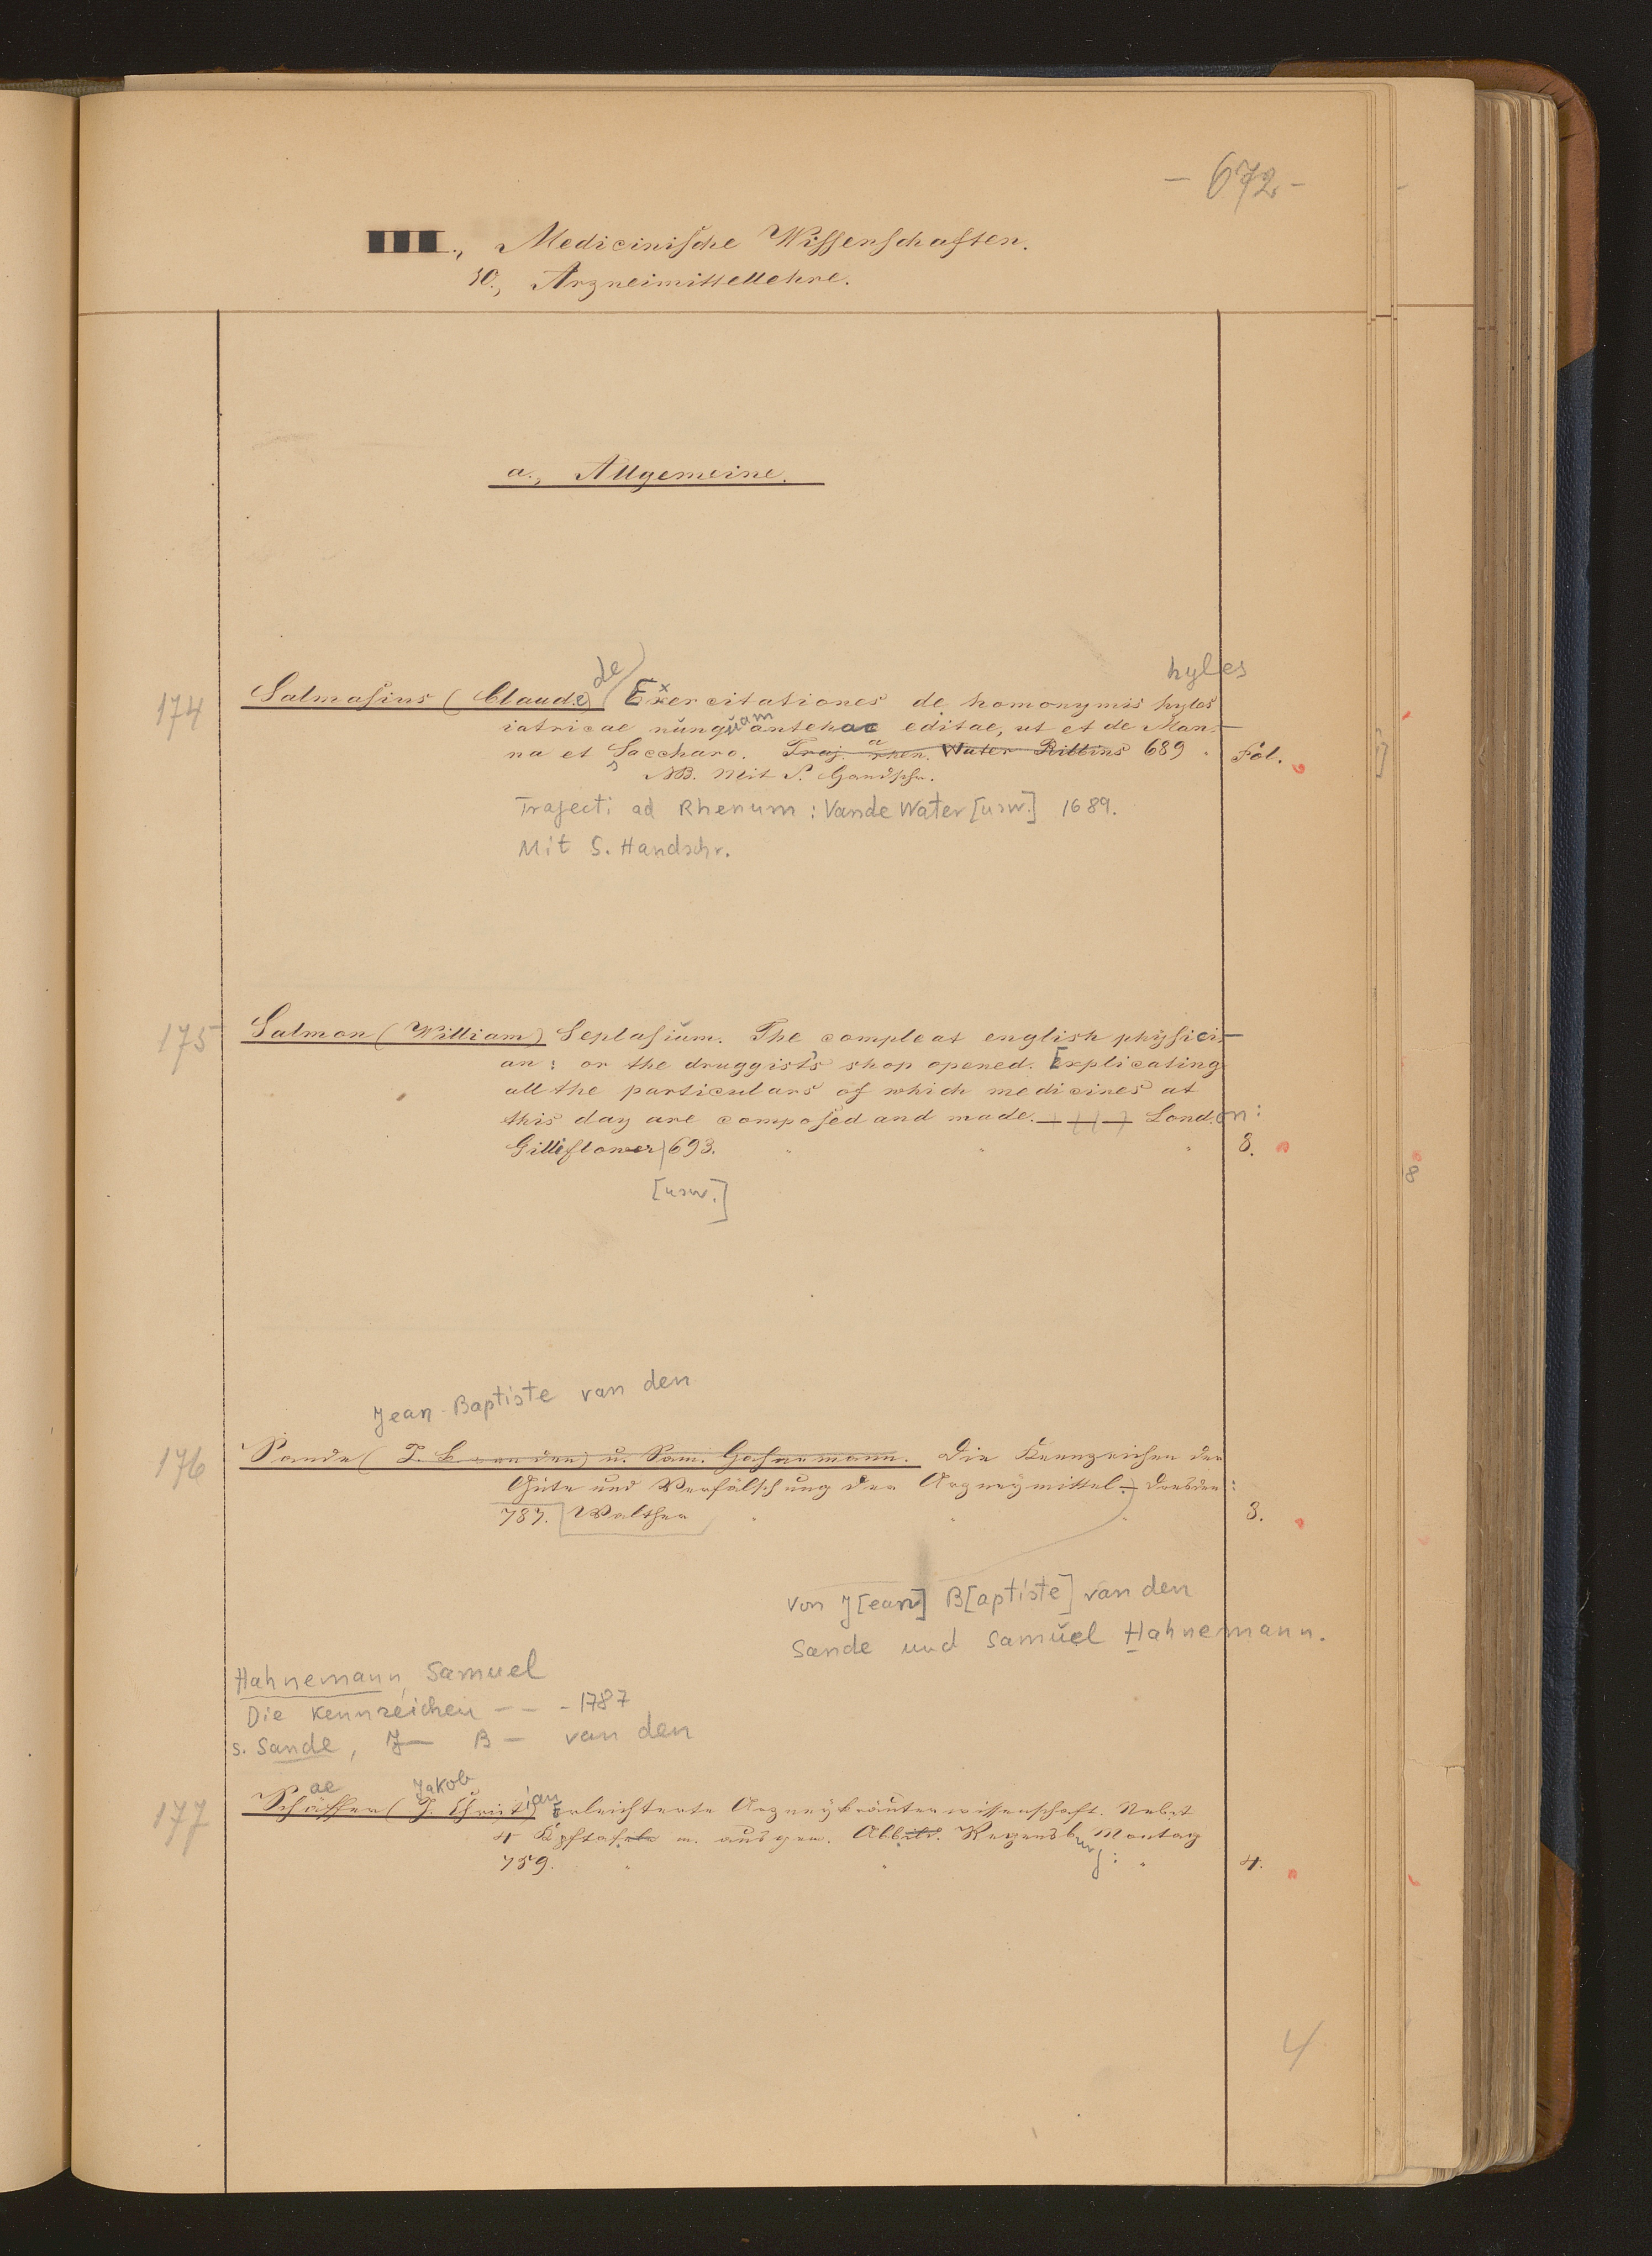 - 672 -
III., Medicinische Wissenschaften.
10., Arzneimittellehre.
a., Allgemeine.
de hyles
174 Salmasius (Claude) Exercitationes de homonymis hyles
iatricae nunquam antehac editae, ut et de Man-
na et Saccharo. Traj. a. rhen. Water Ribbius 689. Fol.
NB. Mit S. Handschr.
Trajecti ad Rhenum: Vande Water [usw.] 1689.
Mit S. Handschr.
175 Salmon (William) Seplasium. The compleat english physici-
an: or the druggist's shop opened. Explicating
all the particulars of which medicines at
this day are composed and made. London:
Gilliflower 693. 8.
[usw.]
8
Jean-Baptiste van den
176 Sande (J. B. van den) u. Sam. Hahnemann. Die Kennzeichen der
Güte und Verfälschung der Arzneymittel. Dresden:
787. Walther 8.
von J[ean] B[aptiste] van den
Sande und Samuel Hahnemann.
Hahnemann, Samuel
Die Kennzeichen - - - 1787
s. Sande, J- B- van den
ae Jakob
177 Schäffer (J. Christian) Erleichterte Arzneykräuterwissenschaft. Nebst
4 Kpftafeln m. ausgem. Abbild. Regensburg: Montag
759. 4.
4